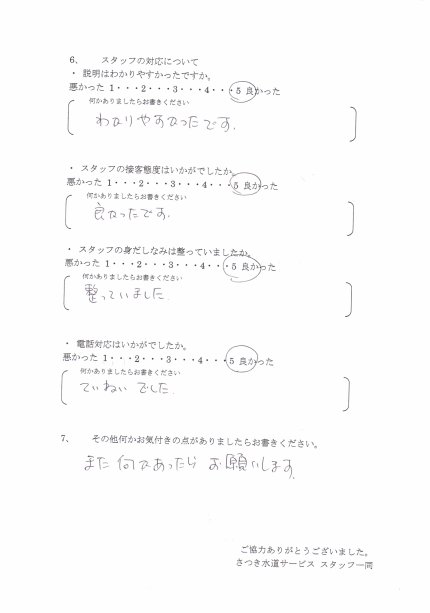 6、 スタッフの対応について
・ 説明はわかりやすかったですか。
悪かった 1・・・2・・・3・・・4・・・5 良かった
何かありましたらお書きください
わかりやすかったです.
・ スタッフの接客態度はいかがでしたか。
悪かった 1・・・2・・・3・・・4・・・5 良かった
何かありましたらお書きください
良かったです.
・ スタッフの身だしなみは整っていましたか。
悪かった 1・・・2・・・3・・・4・・・5 良かった
何かありましたらお書きください
整っていました.
・ 電話対応はいかがでしたか。
悪かった 1・・・2・・・3・・・4・・・5 良かった
何かありましたらお書きください
ていねいでした.
7、 その他何かお気付きの点がありましたらお書きください。
また何かあったらお願いします.
ご協力ありがとうございました。
さつき水道サービス スタッフ一同